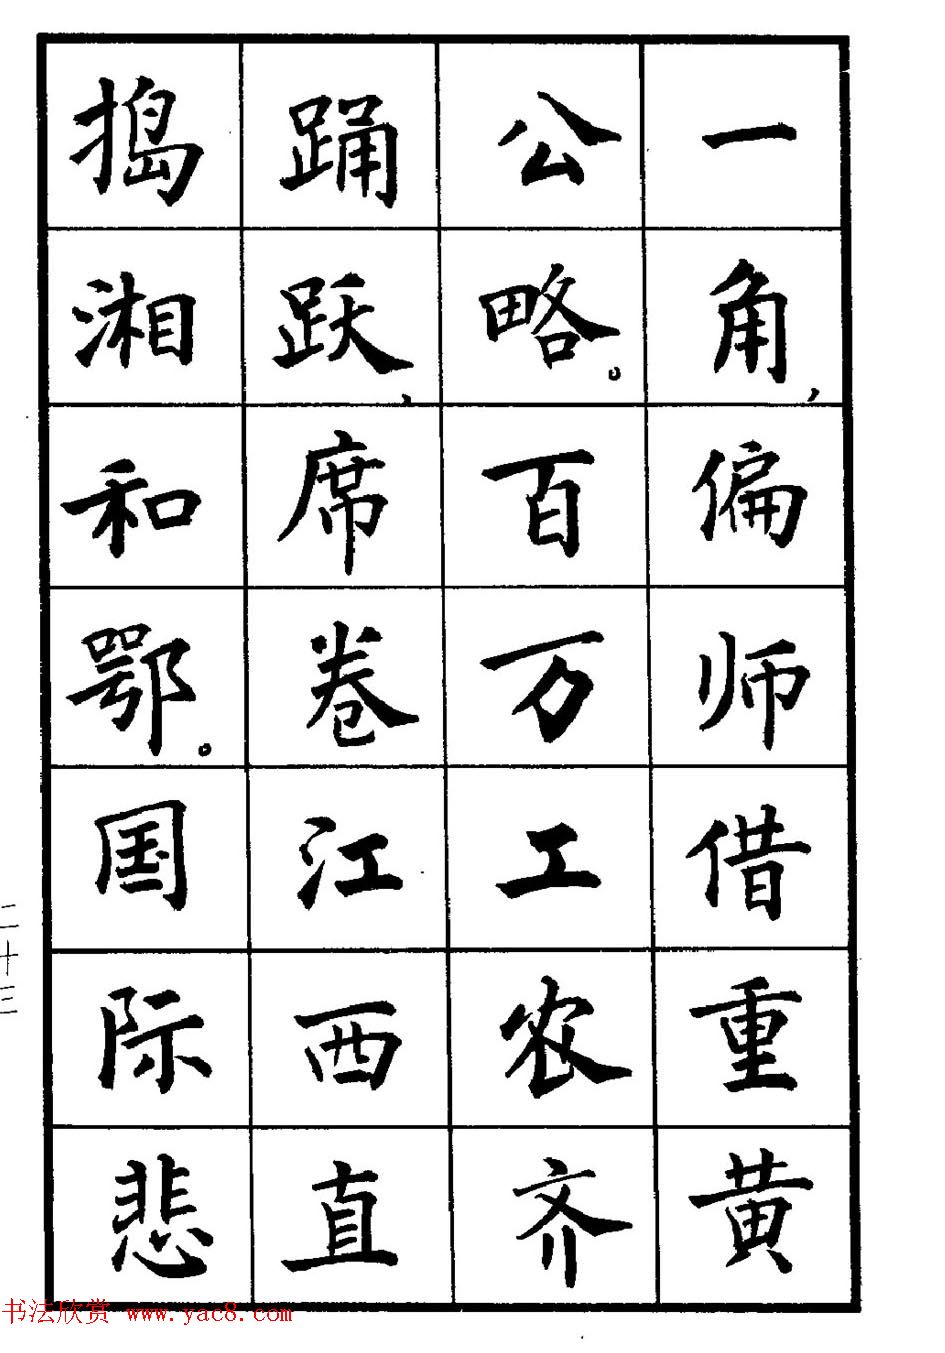 一角，偏师借重黄
公略。百万工农齐
踊跃，席卷江西直
捣湘和鄂。国际悲
二十三
书法欣赏 www.yac8.com